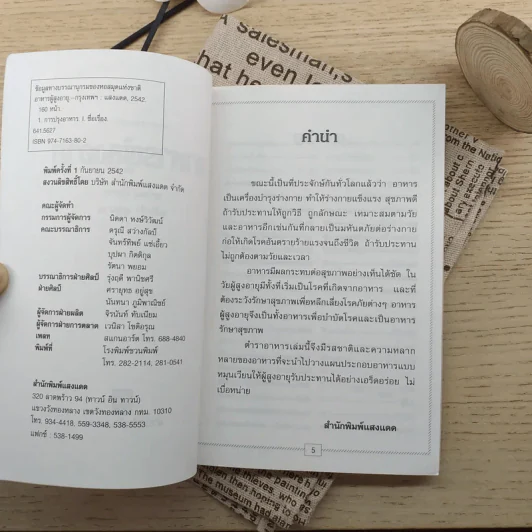 ข้อมูลทางบรรณานุกรมของหอสมุดแห่งชาติ
อาหารผู้สูงอายุ.--กรุงเทพฯ : แสงแดด, 2542.
160 หน้า.
1. การปรุงอาหาร. I. ชื่อเรื่อง.
641.5627
ISBN 974-7163-80-2
พิมพ์ครั้งที่ 1 กันยายน 2542
สงวนลิขสิทธิ์โดย บริษัท สำนักพิมพ์แสงแดด จำกัด
คณะผู้จัดทำ
กรรมการผู้จัดการ นิดดา หงษ์วิวัฒน์
คณะบรรณาธิการ ดรุณี สว่างกัลป์
จันทร์ทิพย์ แซ่เฮี้ยว
บุปผา กิตติกุล
รัตนา พยอม
บรรณาธิการฝ่ายศิลป์ รุ่งฤดี พานิชศรี
ฝ่ายศิลป์ ศรายุทธ อยู่สุข
นันทนา ภูมิพาณิชย์
ฝ่ายผลิต จิรนันท์ ทับเนียม
ผู้จัดการฝ่ายการตลาด เวนิสา โชติอรุณ
เพลท สแกนอาร์ต โทร. 688-4840
พิมพ์ที่ โรงพิมพ์ชวนพิมพ์
โทร. 282-2114, 281-0541
สำนักพิมพ์แสงแดด
320 ลาดพร้าว 94 (ทาวน์ อิน ทาวน์)
แขวงวังทองหลาง เขตวังทองหลาง กทม. 10310
โทร. 934-4418, 559-3348, 538-5553
แฟกซ์ : 538-1499
คำนำ
ขณะนี้เป็นที่ประจักษ์กันทั่วโลกแล้วว่า อาหาร
เป็นเครื่องบำรุงร่างกาย ทำให้ร่างกายแข็งแรง สุขภาพดี
ถ้ารับประทานให้ถูกวิธี ถูกลักษณะ เหมาะสมตามวัย
และอาหารอีกเช่นกันที่กลายเป็นมหันตภัยต่อร่างกาย
ก่อให้เกิดโรคอันตรายร้ายแรงจนถึงชีวิต ถ้ารับประทาน
ไม่ถูกต้องตามวัยและเวลา
อาหารมีผลกระทบต่อสุขภาพอย่างเห็นได้ชัด ใน
วัยผู้สูงอายุมีทั้งที่เริ่มเป็นโรคที่เกิดจากอาหาร และที่
ต้องระวังรักษาสุขภาพเพื่อหลีกเลี่ยงโรคภัยต่างๆ อาหาร
ผู้สูงอายุจึงเป็นทั้งอาหารเพื่อบำบัดโรคและเป็นอาหาร
รักษาสุขภาพ
ตำราอาหารเล่มนี้จึงมีรสชาติและความหลาก
หลายของอาหารที่จะนำไปวางแผนประกอบอาหารแบบ
หมุนเวียนให้ผู้สูงอายุรับประทานได้อย่างเอร็ดอร่อย ไม่
เบื่อหน่าย
สำนักพิมพ์แสงแดด
5
salesman,
even
what he
The museum had